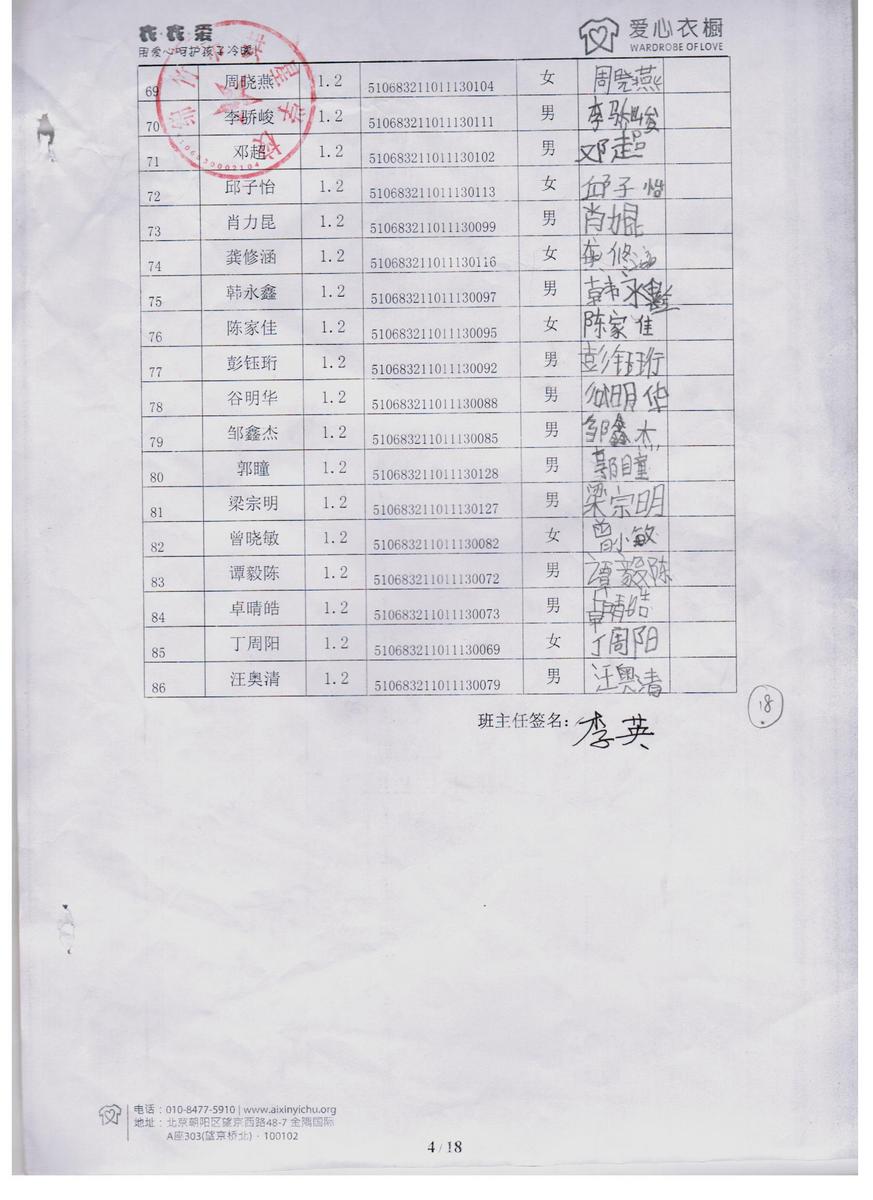 衣衣爱
用爱心呵护孩子冷暖
爱心衣橱
WARDROBE OF LOVE
69 周晓燕 1.2 510683211011130104 女 周晓燕
70 李骄峻 1.2 510683211011130111 男 李骄峻
71 邓超 1.2 510683211011130102 男 邓超
72 邱子怡 1.2 510683211011130113 女 邱子怡
73 肖力昆 1.2 510683211011130099 男 肖力昆
74 龚修涵 1.2 510683211011130116 女 龚修涵
75 韩永鑫 1.2 510683211011130097 男 韩永鑫
76 陈家佳 1.2 510683211011130095 女 陈家佳
77 彭钰珩 1.2 510683211011130092 男 彭钰珩
78 谷明华 1.2 510683211011130088 男 谷明华
79 邹鑫杰 1.2 510683211011130085 男 邹鑫杰
80 郭瞳 1.2 510683211011130128 男 郭瞳
81 梁宗明 1.2 510683211011130127 男 梁宗明
82 曾晓敏 1.2 510683211011130082 女 曾小敏
83 谭毅陈 1.2 510683211011130072 男 谭毅陈
84 卓晴皓 1.2 510683211011130073 男 卓晴皓
85 丁周阳 1.2 510683211011130069 女 丁周阳
86 汪奥清 1.2 510683211011130079 男 汪奥清
班主任签名：李英
18
电话：010-8477-5910 | www.aixinyichu.org
地址：北京朝阳区望京西路48-7 金隅国际
A座303(望京桥北)·100102
4/18